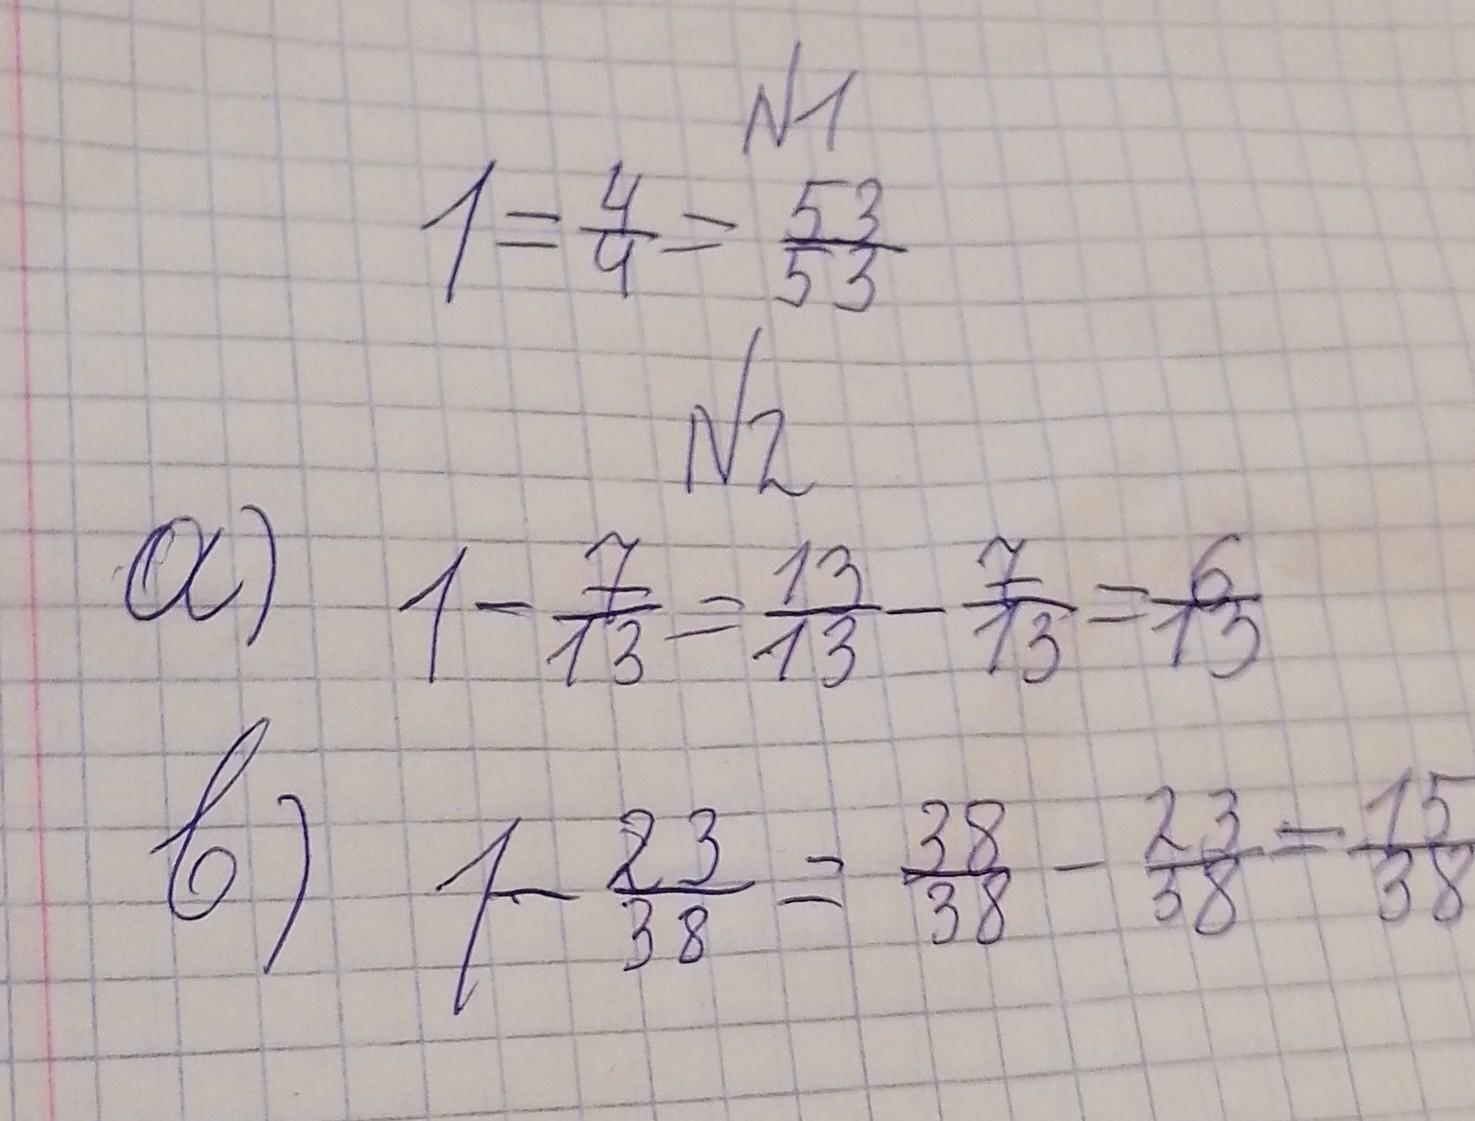 N1
1 = 4/4 = 53/53
N2
a) 1 - 7/13 = 13/13 - 7/13 = 6/13
b) 1 - 23/38 = 38/38 - 23/38 = 15/38